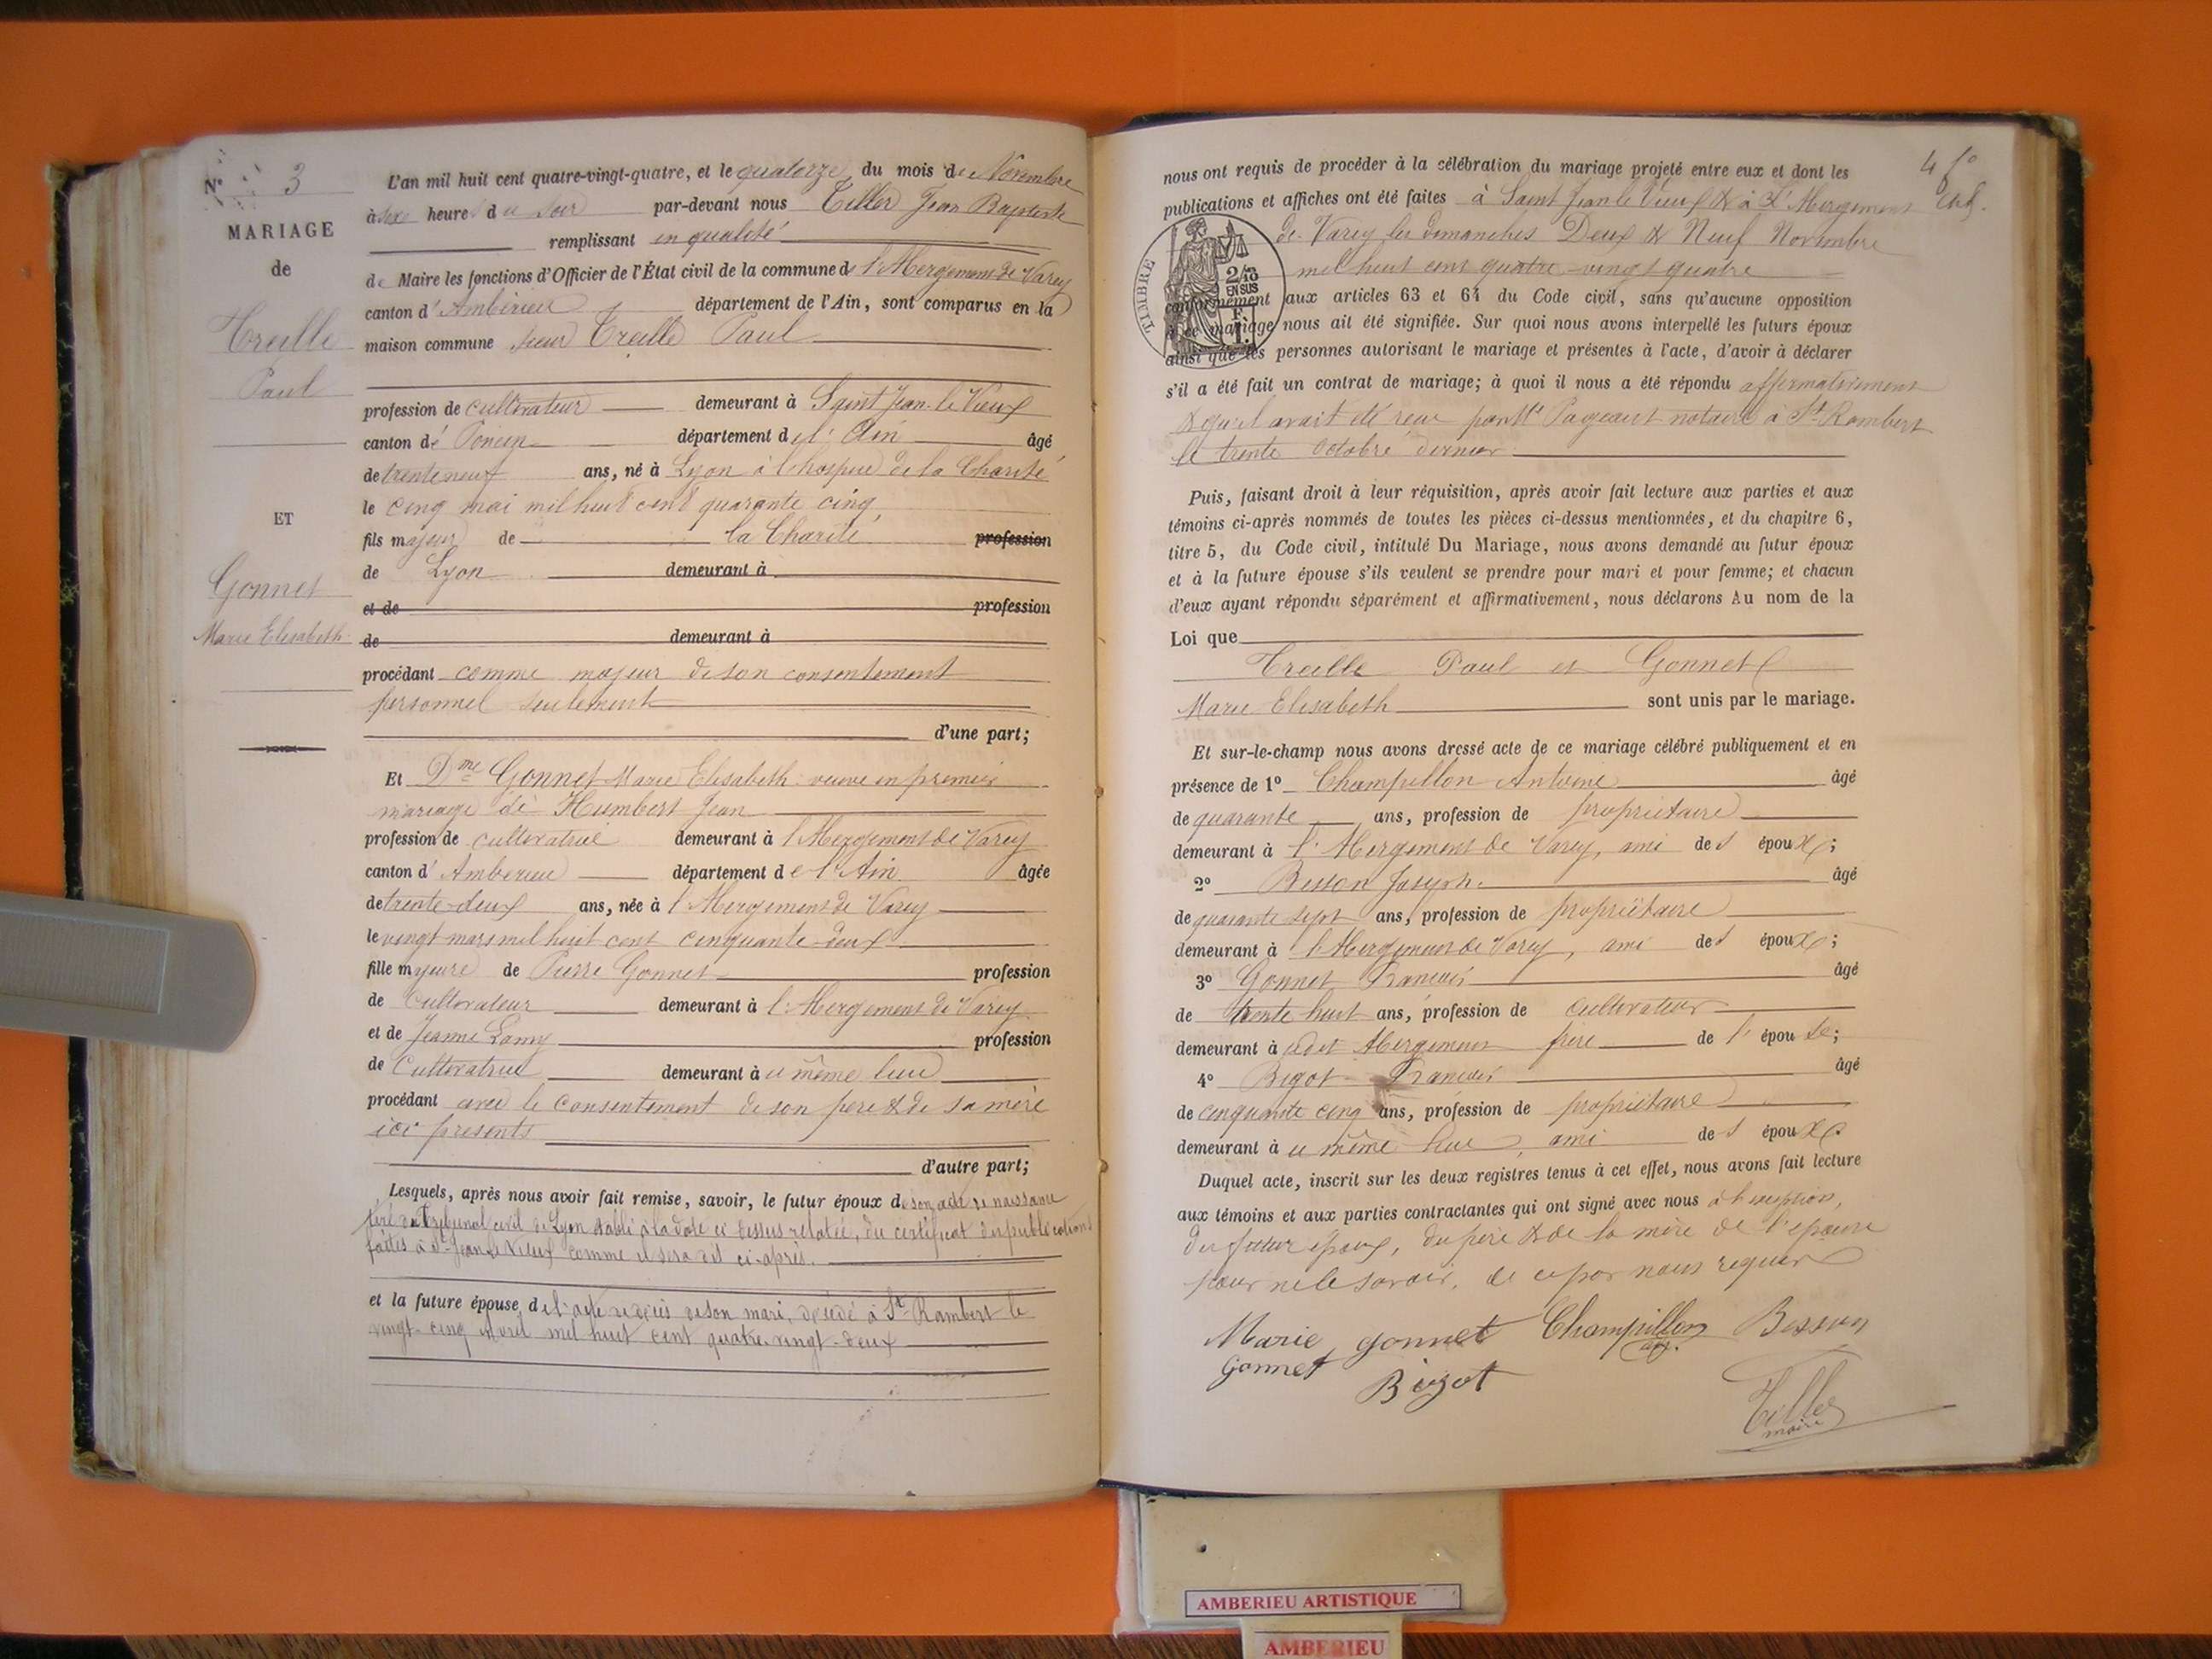 N° 3
MARIAGE
de
Treille
Paul
ET
Gonnet
Marie Elisabeth
L'an mil huit cent quatre-vingt-quatre, et le quatorze du mois de Novembre
à six heures du soir par-devant nous Tiller Jean Baptiste
remplissant en qualité
de Maire les fonctions d'Officier de l'État civil de la commune de l'Abergement de Varey
canton d'Ambérieu département de l'Ain, sont comparus en la
maison commune sieur Treille Paul
profession de cultivateur demeurant à Saint Jean-le Vieux
canton de Poncin département de l'Ain âgé
de trente neuf ans, né à Lyon à l'hospice de la Charité
le cinq mai mil huit cent quarante cinq,
fils majeur de la Charité profession
de Lyon demeurant à
et de profession
de demeurant à
procédant comme majeur de son consentement
personnel seulement
d'une part;
Et Dme Gonnet Marie Elisabeth veuve en premier
mariage de Humbert Jean
profession de cultivatrice demeurant à l'Abergement de Varey
canton d'Amberieu département de l'Ain âgée
de trente-deux ans, née à l'Abergement de Varey
le vingt mars mil huit cent cinquante-deux
fille majeure de Pierre Gonnet profession
de cultivateur demeurant à l'Abergement de Varey
et de Jeanne Lamy profession
de Cultivatrice demeurant au même lieu
procédant avec le consentement de son père & de sa mère
ici présents
d'autre part;
Lesquels, après nous avoir fait remise, savoir, le futur époux de son acte de naissance
tiré du Tribunal civil de Lyon établi à la date ci dessus relatée, du certificat des publications
faites à St-Jean le Vieux comme il sera dit ci-après.
et la future épouse de l'acte de décès de son mari, décédé à St-Rambert le
vingt-cinq Avril mil huit cent quatre-vingt-deux
nous ont requis de procéder à la célébration du mariage projeté entre eux et dont les
4 fo
publications et affiches ont été faites à Saint Jean le Vieux & à l'Abergement
de Varey les dimanches Deux & Neuf Novembre
mil huit cent quatre-vingt quatre
TIMBRE
2/10
EN SUS
F.
1.
conformément aux articles 63 et 64 du Code civil, sans qu'aucune opposition
à ce mariage nous ait été signifiée. Sur quoi nous avons interpellé les futurs époux
ainsi que les personnes autorisant le mariage et présentes à l'acte, d'avoir à déclarer
s'il a été fait un contrat de mariage; à quoi il nous a été répondu affirmativement
& qu'il avait été reçu par Me Pageaut notaire à St-Rambert
le trente octobre dernier
Puis, faisant droit à leur réquisition, après avoir fait lecture aux parties et aux
témoins ci-après nommés de toutes les pièces ci-dessus mentionnées, et du chapitre 6,
titre 5, du Code civil, intitulé Du Mariage, nous avons demandé au futur époux
et à la future épouse s'ils veulent se prendre pour mari et pour femme; et chacun
d'eux ayant répondu séparément et affirmativement, nous déclarons Au nom de la
Loi que
Treille Paul et Gonnet
Marie Elisabeth sont unis par le mariage.
Et sur-le-champ nous avons dressé acte de ce mariage célébré publiquement et en
présence de 1° Champillon Antoine âgé
de quarante ans, profession de propriétaire
demeurant à l'Abergement de Varey, ami des époux;
2° Besson Joseph âgé
de quarante sept ans, profession de propriétaire
demeurant à l'Abergement de Varey, ami des époux;
3° Gonnet François âgé
de trente huit ans, profession de cultivateur
demeurant à Abergement frère de l'épouse;
4° Bigot François âgé
de cinquante cinq ans, profession de propriétaire
demeurant au même lieu, ami des époux
Duquel acte, inscrit sur les deux registres tenus à cet effet, nous avons fait lecture
aux témoins et aux parties contractantes qui ont signé avec nous à l'exception,
du futur époux, du père & de la mère de l'épouse
pour ne le savoir, de ce par nous requis
Marie gonnet Champillon Besson
gonnet Bigot
Tiller
maire
AMBERIEU ARTISTIQUE
AMBERIEU